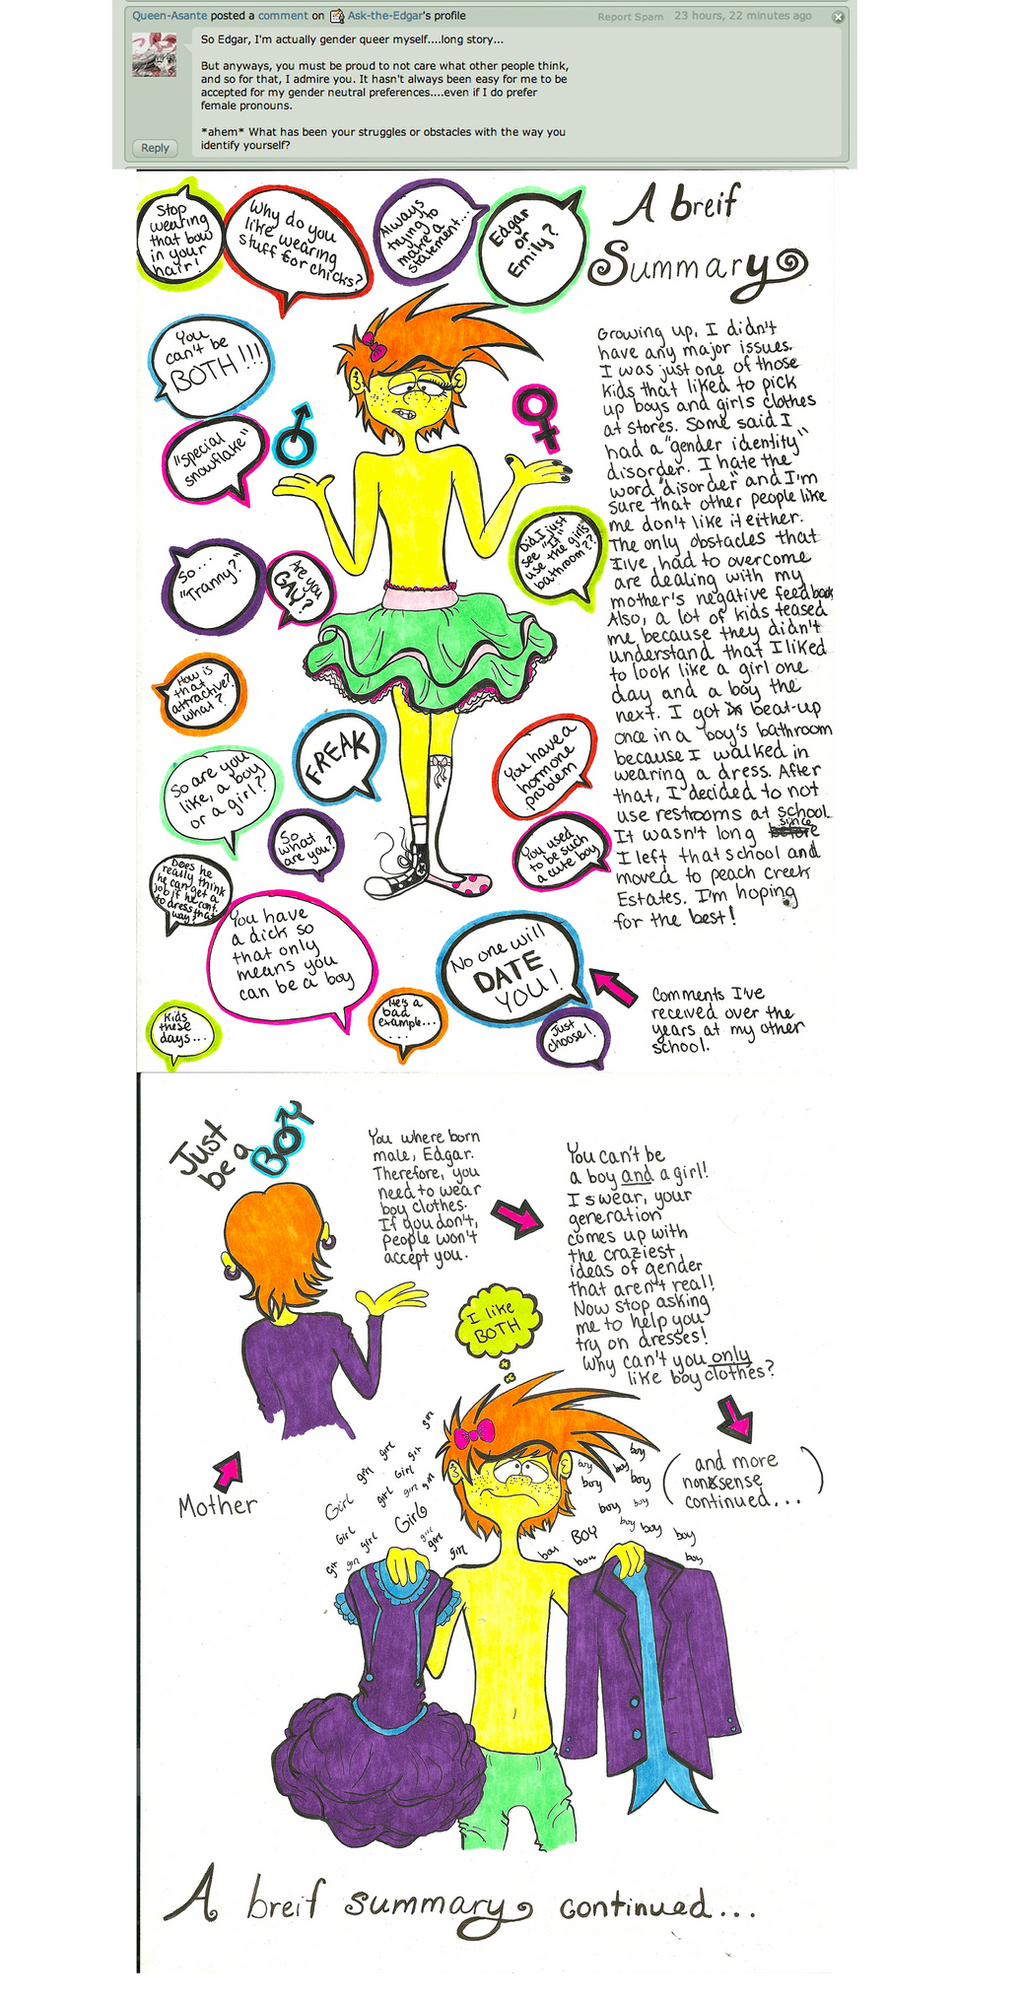 Queen-Asante posted a comment on Ask-the-Edgar's profile
Report Spam 23 hours, 22 minutes ago
So Edgar, I'm actually gender queer myself....long story...
But anyways, you must be proud to not care what other people think,
and so for that, I admire you. It hasn't always been easy for me to be
accepted for my gender neutral preferences....even if I do prefer
female pronouns.
*ahem* What has been your struggles or obstacles with the way you
identify yourself?
Reply
A breif
Summary
Stop
wearing
that bow
in your
hair!
Why do you
like wearing
stuff for chicks?
Always
trying to
make a
statement...
Edgar
or
Emily?
You
can't be
BOTH!!!
"special
snowflake"
So...
"Tranny?"
Are you
GAY?
Did I just
see "It"
use the girls
bathroom??
How is
that
attractive?
what?
FREAK
You have a
hormone
problem
So are you
like, a boy
or a girl?
So
what
are you?
You used
to be such
a cute boy
Does he
really think
he can get a
job if he cont.
to dress that
way?
You have
a dick so
that only
means you
can be a boy
No one will
DATE
YOU!
Kids
these
days...
He's a
bad
example...
...
Just
choose!
Growing up, I didn't
have any major issues.
I was just one of those
kids that liked to pick
up boys and girls clothes
at stores. Some said I
had a "gender identity"
disorder. I hate the
word "disorder" and I'm
sure that other people like
me don't like it either.
The only obstacles that
I've had to overcome
are dealing with my
mother's negative feedback
Also, a lot of kids teased
me because they didn't
understand that I liked
to look like a girl one
day and a boy the
next. I got beat-up
once in a boy's bathroom
because I walked in
wearing a dress. After
that, I decided to not
use restrooms at school.
It wasn't long since
I left that school and
moved to peach creek
Estates. I'm hoping
for the best!
Comments I've
received over the
years at my other
school.
Just
be a
BOY
You where born
male, Edgar.
Therefore, you
need to wear
boy clothes.
If you don't,
people won't
accept you.
You can't be
a boy and a girl!
I swear, your
generation
comes up with
the craziest
ideas of gender
that aren't real!
Now stop asking
me to help you
try on dresses!
Why can't you only
like boy clothes?
I like
BOTH
(and more
nonsense
continued...)
Mother
girl
girl
girl
girl
Girl
girl
girl
girl
Girl
Girl
Girl
girl
girl
girl
girl
girl
girl
boy
boy
boy
boy
boy
boy
boy
BOY
boy
boy
boy
boy
boy
boy
A breif summary continued...